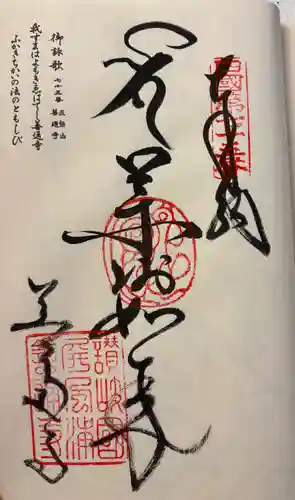 奉納
薬師如来
善通寺
讃岐国
屏風浦
御詠歌 七十五番 五岳山 善通寺
我すまはよもきえはてし善通寺
ふかきちかいの法のともしび